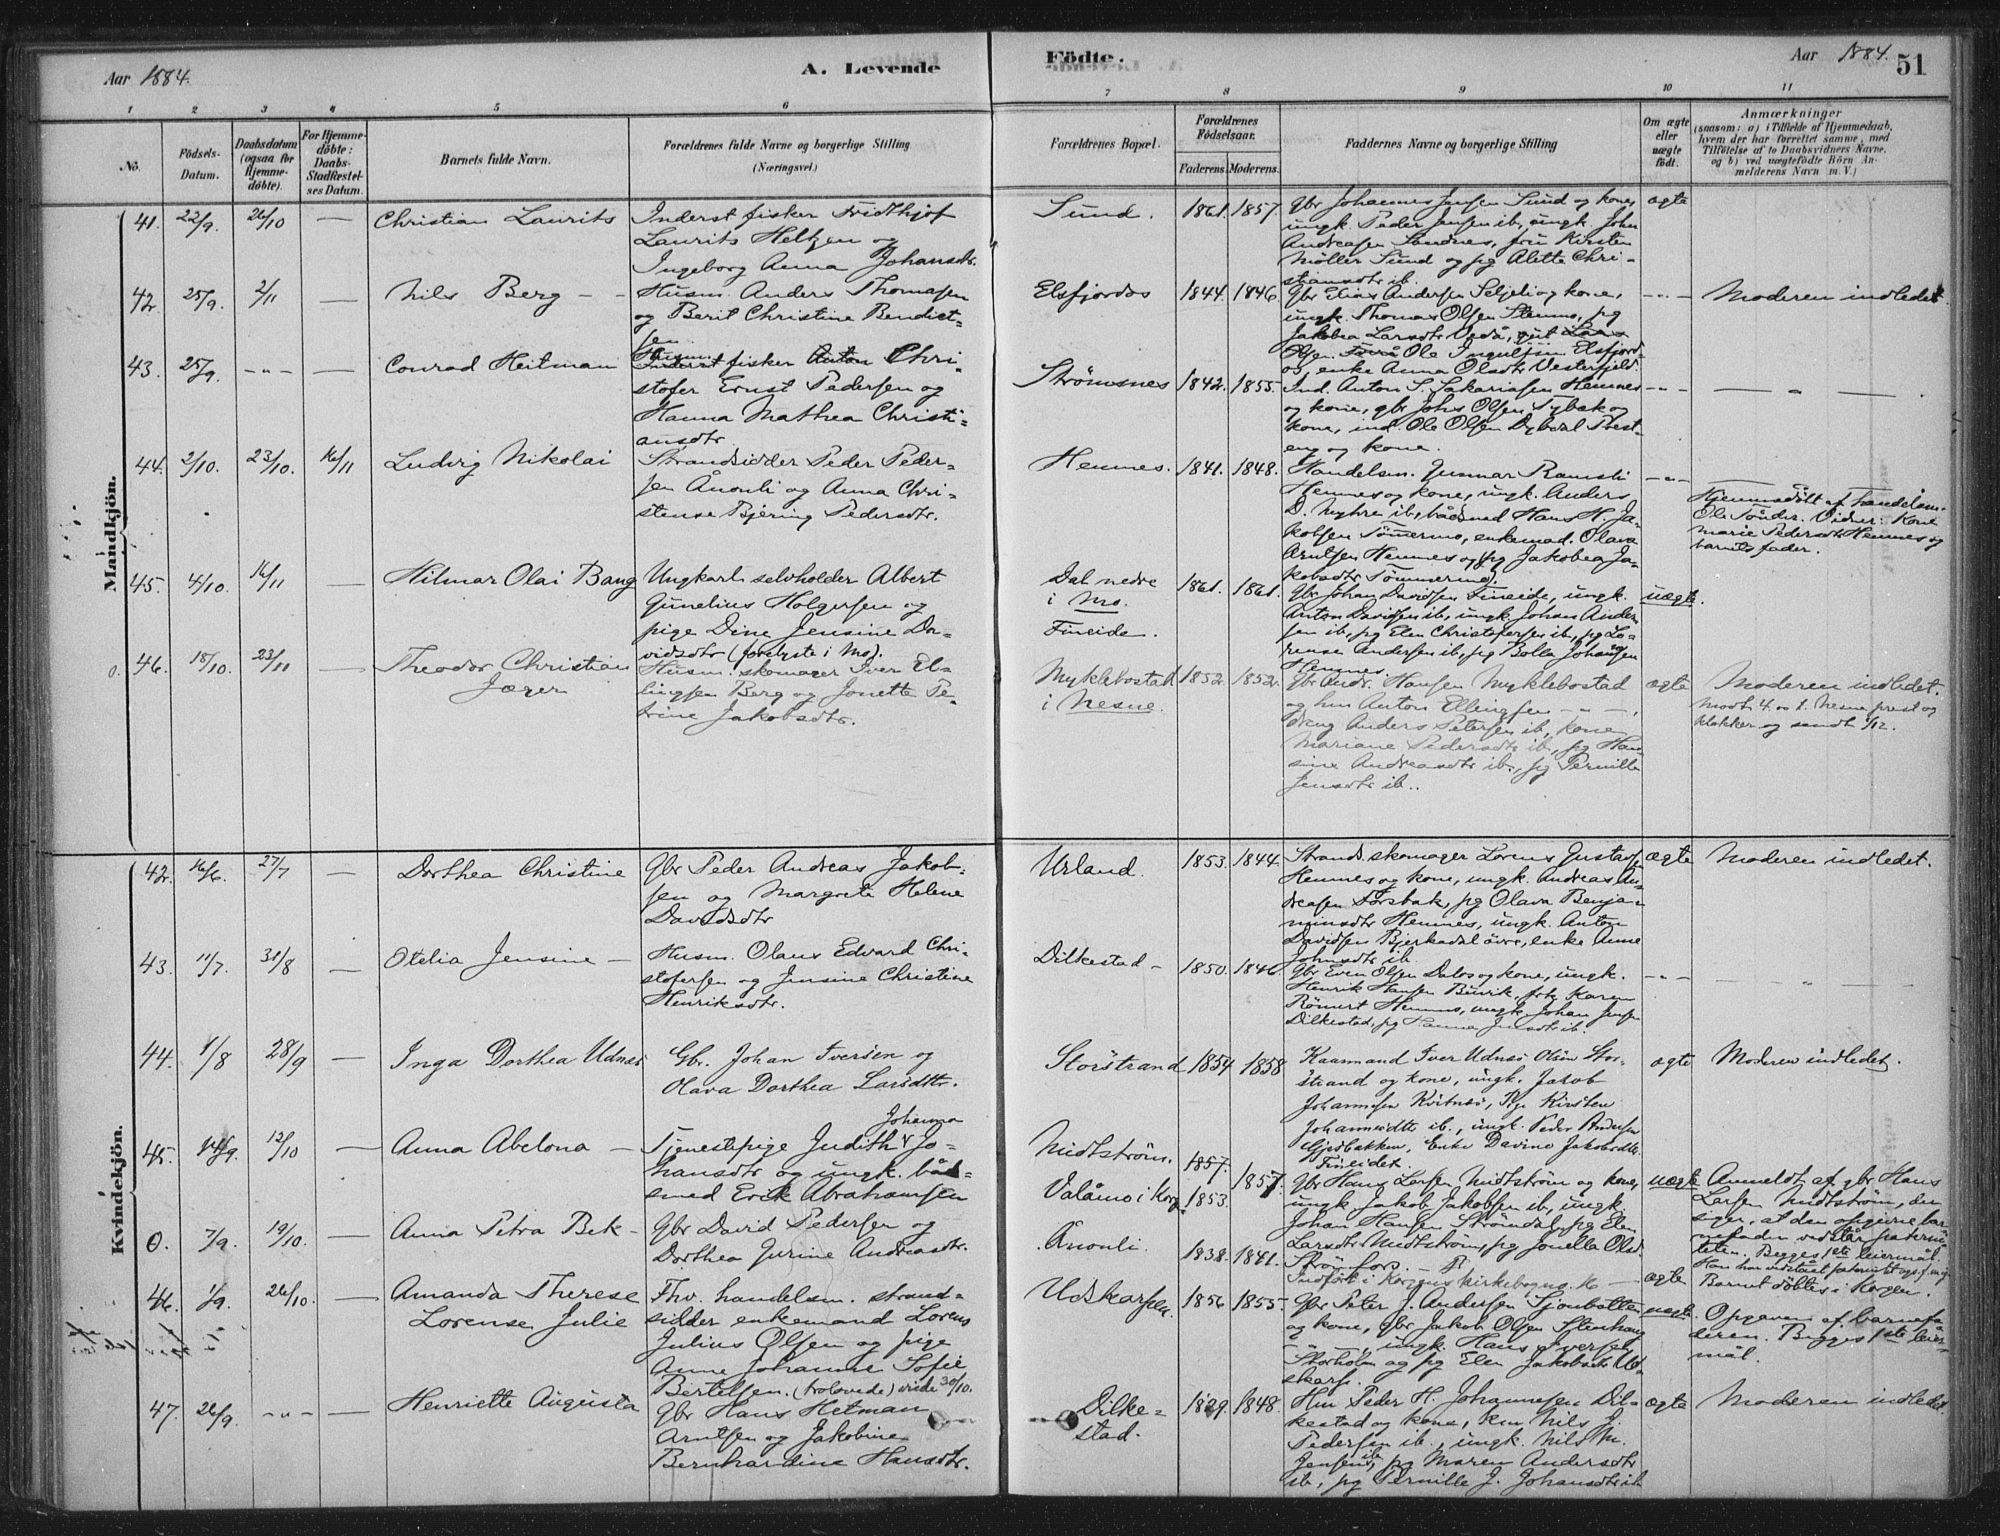 Aar 1884.
A. Levende
Födte.
Aar 1884.
51
1 2 3 4 5 6 7 8 9 10 11
No.
Födsels-
Datum.
Daabsdatum
(ogsaa for
Hjemme-
döbte).
For Hjemme-
döbte:
Daabs-
Stadfæstel-
ses Datum.
Barnets fulde Navn.
Forældrenes fulde Navne og borgerlige Stilling
(Næringsvei.)
Forældrenes Bopæl.
Forældrenes
Födselsaar.
Faderens.
Moderens.
Faddernes Navne og borgerlige Stilling
Om ægte
eller
uægte
födt.
Anmærkninger
(saasom: a) i Tilfælde af Hjemmedaab,
hvem der har forrettet samme, med
Tilföielse af to Daabsvidners Navne,
og b) ved uægtefödte Börn An-
melderens Navn m. V.)
Mandkjön.
41. 22/9 26/10 — Christian Laurits
Inderst fisker Fridthjof
Laurits Heltzen og
Ingeborg Anna Johansdtr.
Sund. 1861. 1857.
Gbr Johannes Jensen Sund og kone,
ungk. Peder Jensen ib, ungk. Johan
Andreasen Sandnes, fru Kirsten
Möller Sund og pg Alette Chri-
stiansdtr ib.
ægte
42 25/9 2/11 — Nils Berg — —
Husm. Anders Thomasen
og Berit Christine Bendict-
sen
Elsfjordos 1844. 1846.
Gbr Elias Andersen Seljeli og kone,
ungk. Thomas Olsen Stemno, pg
Jakobea Larsdtr
Olsen Ole Ingulfsen Elsfjord-
os, enke Anna Olsdtr Vesterfjeld.
—"— Moderen indledet
43. 25/9 —"— — Conrad Heitman
Husm. fisker Chri-
stofer Ernst Pedersen og
Hanna Mathea Christi-
ansdtr
Strömsnes 1842. 1855.
Ind. Anton S. Sakariasen Hemnes
og kone, gbr Johs Olsen Tybæk og
kone, ind. Ole Olsen Dybdal Præst-
eng og kone.
—"— — " —
44. 2/10. 23/10. 16/11 Ludvig Nikolai
Strandsidder Peder Peder-
sen Ånonli og Anna Chri-
stense Bjering Pedersdtr.
Hemnes. 1841. 1848.
Handelsm. Gunnar Ramsli
Hemnes og kone, ungk. Anders
D. Myhre ib, bådsmed Hans H. Ja-
kobsen Tömmermo, enkemad. Olava
Arntsen Hemnes og pg Jakobea Ja-
kobsdtr Tömmermo.
—"—
Hjemmedöbt af handelsm.
Ole Tönder. Vidner: Kone
Marie Pedersdtr Hemnes og
barnets fader.
45. 4/10. 16/11 — Hilmar Olai Bang
Ungkarl selvholder Albert
Gunelius Holgersen og
pige Dine Jensine Da-
vidsdtr (forerste i Mo).
Dal nedre
i Mo.
Fineide.
1861. 1861.
Gbr Johan Davidsen Fineide, ungk.
Anton Davidsen ib, ungk Johan Ander-
sen ib, pg Elen Christofersen ib, pg Lo-
rense Andersen ib, pg Bolla Johansen
Hemnes.
uægte.
0. 46. 15/10. 23/11 — Theodor Christian
Jæger
Husm. skomager Iver El-
lingsen Berg og Jonette Pe-
trine Jakobsdtr.
Myklebostad
i Nesne.
1852. 1852.
Gbr Andr. Hansen Myklebostad
og hm Anton Ellingsen — " —,
dreng Anders Petersen ib, kone
Mariane Pedersdtr ib, pg Han-
sine Andreasdtr ib., pg Pernille
Jensdtr ib..
ægte Moderen indledet.
Modt. 4 Nesne prest og
klokker og sendt 1/12.
Kvindekjön.
42. 16/6 27/7 — Dorthea Christine
Gbr Peder Andreas Jakob-
sen og Margrete Helene
Davidsdtr
Urland. 1853. 1844.
Strands. skomager Lorens Gustavsen
Hemnes og kone, ungk. Andreas An-
dreasen Forsbak, pg Olava Benja-
minsdtr Hemnes, ungk. Anton
Davidsen Bjerkadal övre, enke Anne
Johnsdtr ib.
ægte Moderen indledet.
43. 11/7. 31/8 — Otelia Jensine —
Husm. Olaus Edvard Chri-
stofersen og Jensine Christine
Henriksdtr.
Dilkestad — 1850. 1846
Gbr Even Olsen Dalos og kone, ungk.
Henrik Hansen Bunvik, frk Karen
Römert Hemnes, ungk Johan Jensen
Dilkestad, pg Hanna Jensdtr ib.
—"— — " —
44. 1/8 28/9 — Inga Dorthea Udnæs
Gbr. Johan Iversen og
Olava Dorthea Larsdttr.
Storstrand 1854 1858
Kaarmand Iver Udnæs Olsen Stor-
strand og kone, ungk. Jakob
Johannesen Kvitnæs, Pige Kirsten
Johannesdtr ib., ungk. Peder Andersen
Gjesbakken, Enke Davine Jakobsdtr
Fineidet.
ægte Moderen indledet.
45. 14/9. 12/10 — Anna Abelona —
Johanna
Tjenestepige Judith Jo-
hansdtr og ungk. båd-
smed Erik Abrahamsen
Midtström.
Valåmo i Korg.
1857. 1853. 1857.
Gbr Hans Larsen Midtström og kone,
ungk Jakob Jakobsen ib, ungk.
Johan Hansen Strömdal, pg Elen
Larsdtr Midtström, pg Jonella Olsd.
Strömfors.
uægte
Anmeldt af gbr Hans
Larsen Midtström, der
siger, at den opgivne bar-
nefader vedstår paterni-
teten. Begges 1ste leiermål.
0. 7/9. 19/10. Anna Petra Bek —
Gbr David Pedersen og
Dorthea Jurine Andreasdtr.
Ånonli. 1838. 1841.
Indfört i Korgens kirkebog no. 16 —
ægte Barnet döbtes i Korgen.
46. 1/9. 26/10. — Amanda Therese
Lorense Julie
Fhv. handelsm. strand-
sidder enkemand Lorens
Julius Olsen og pige
Anne Johanne Sofie
Bertelsen. (trolovede) viede 30/10.
Udskarpen. 1856 1855.
Gbr Peter J. Andersen Sjonbotten
og kone, gbr Jakob Olsen Stenhaug
— " —, ungk. Hans Iversen
Storholm og pg Elen Jakobsdtr Ud-
skarp.
uægte.
Opgaven af barnefa-
deren. Begges 1ste leier-
mål.
47. 26/9. —"— — Henriette Augusta
Gbr Hans Hetman
Arntsen og Jakobine
Bernhardine Hansdtr.
Dilke-
stad.
1829. 1848.
Hm Peder H. Johannesen Dil-
kestad og kone, km Nils J.
Pedersen ib., ungk. Nils M.
Jensen ib, pg Maren Andersdtr
ib., pg Pernille J. Johansdtr ib
ægte Moderen indledet.